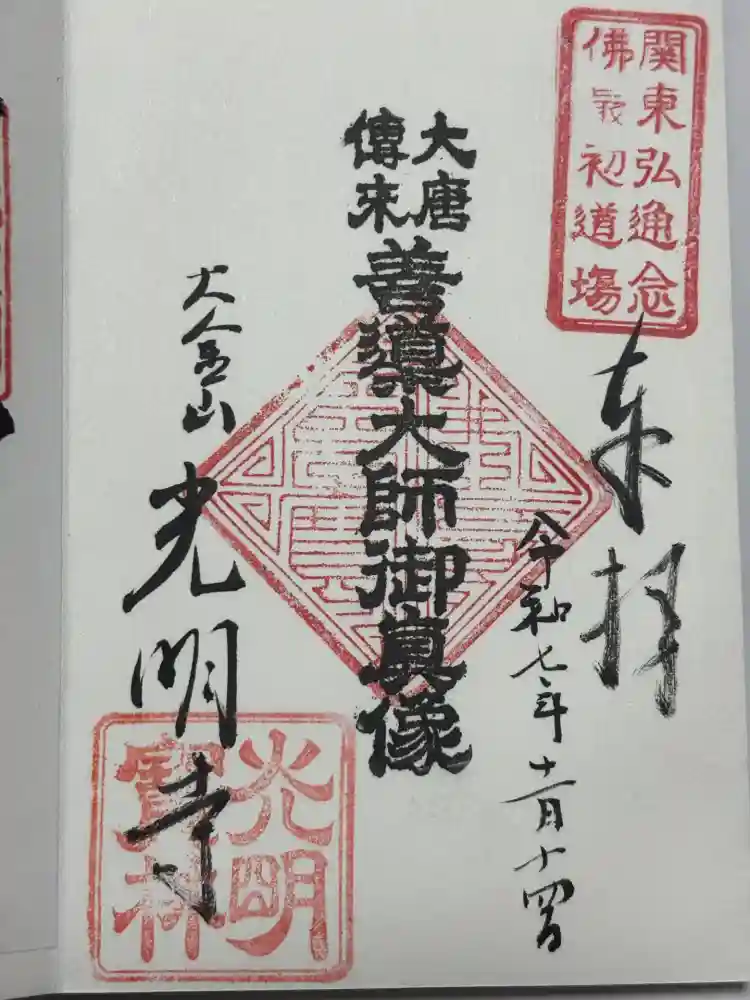 関東弘通念
佛㝡初道場
奉拝
令和七年十一月十四日
大唐
傳来
善導大師御真像
大金山
光明寺
光明
寶林